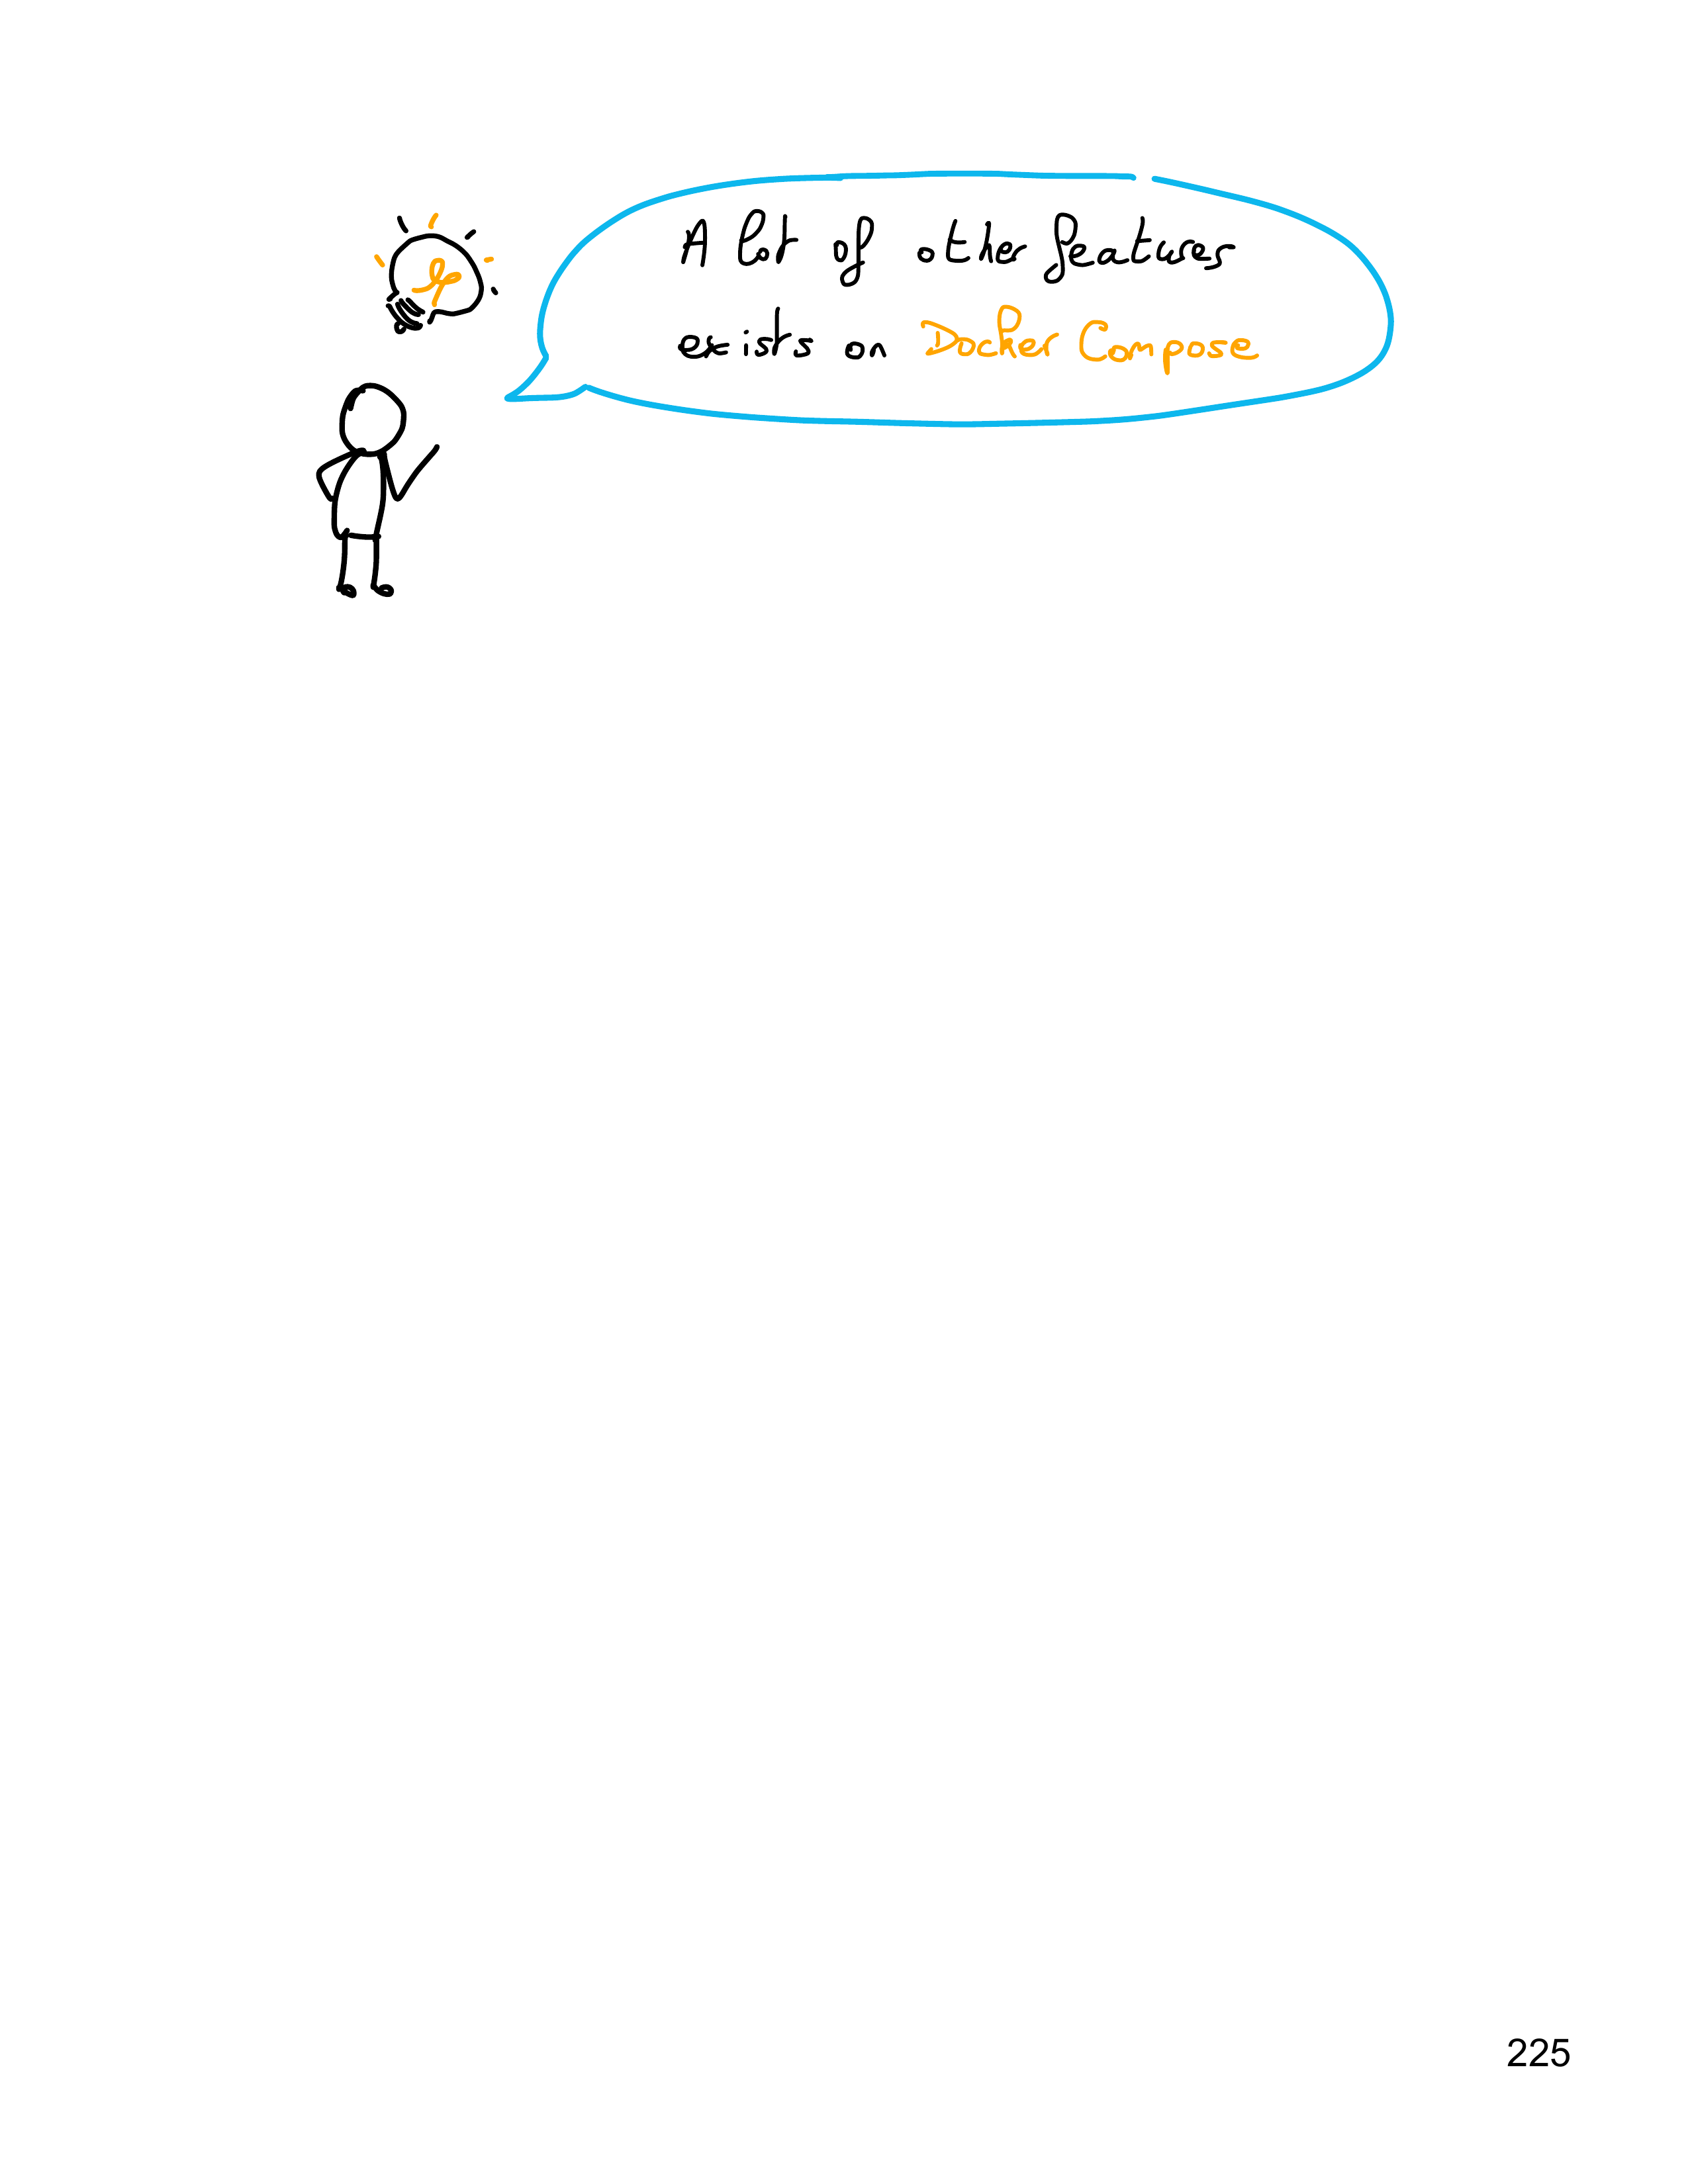 A lot of other features
exists on Docker Compose
225